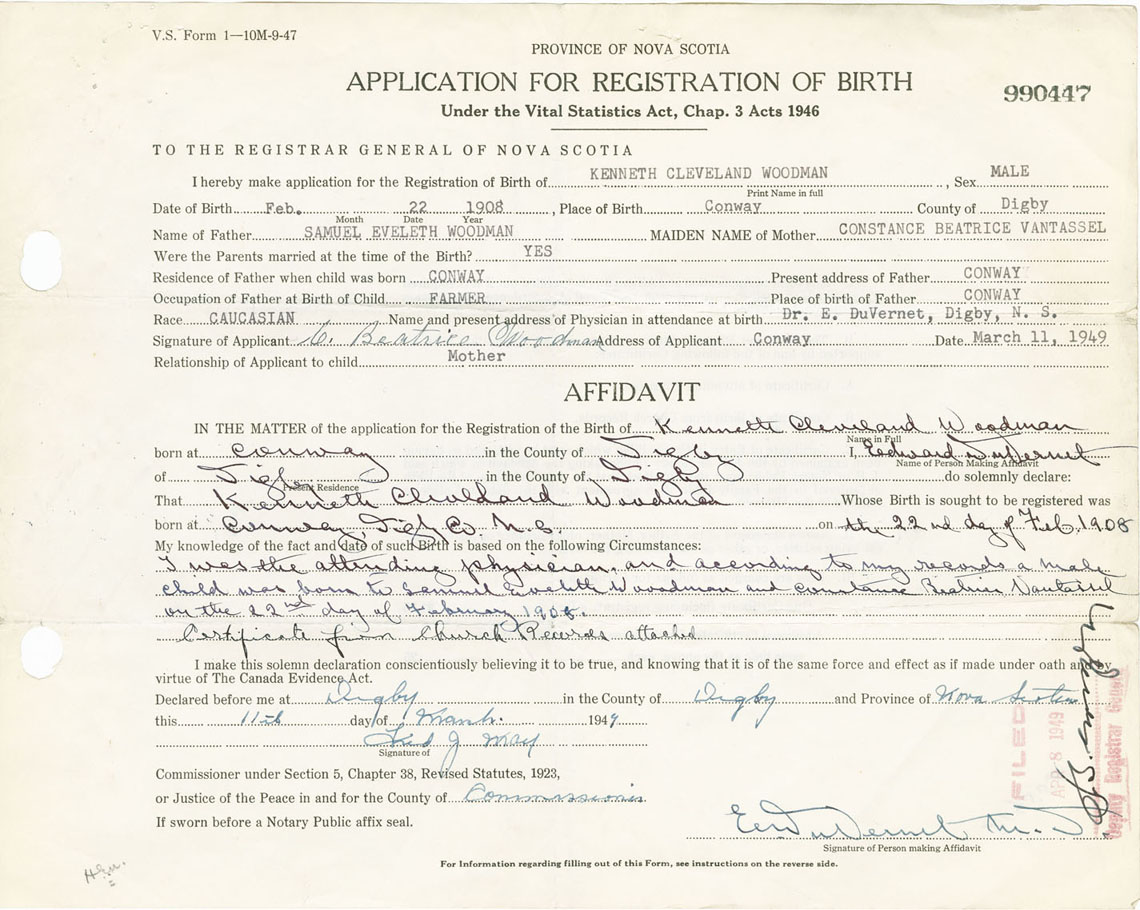 V.S. Form 1—10M-9-47
PROVINCE OF NOVA SCOTIA
APPLICATION FOR REGISTRATION OF BIRTH
990447
Under the Vital Statistics Act, Chap. 3 Acts 1946
TO THE REGISTRAR GENERAL OF NOVA SCOTIA
I hereby make application for the Registration of Birth of KENNETH CLEVELAND WOODMAN, Sex MALE
Print Name in full
Date of Birth Feb. 22 1908, Place of Birth Conway County of Digby
Month Date Year
Name of Father SAMUEL EVELETH WOODMAN MAIDEN NAME of Mother CONSTANCE BEATRICE VANTASSEL
Were the Parents married at the time of the Birth? YES
Residence of Father when child was born CONWAY Present address of Father CONWAY
Occupation of Father at Birth of Child FARMER Place of birth of Father CONWAY
Race CAUCASIAN Name and present address of Physician in attendance at birth Dr. E. DuVernet, Digby, N. S.
Signature of Applicant C. Beatrice Woodman Address of Applicant Conway Date March 11, 1949
Relationship of Applicant to child Mother
AFFIDAVIT
IN THE MATTER of the application for the Registration of the Birth of Kenneth Cleveland Woodman
Name in Full
born at Conway in the County of Digby I, Edward DuVernet
Name of Person Making Affidavit
of Digby in the County of Digby do solemnly declare:
Present Residence
That Kenneth Cleveland Woodman Whose Birth is sought to be registered was
born at Conway, Digby Co. N.S. on the 22nd day of Feb. 1908
My knowledge of the fact and date of such Birth is based on the following Circumstances:
I was the attending physician, and according to my records a male
child was born to Samuel Eveleth Woodman and Constance Beatrice Vantassel
on the 22nd day of February 1908.
Certificate from Church Records attached
I make this solemn declaration conscientiously believing it to be true, and knowing that it is of the same force and effect as if made under oath and by
virtue of The Canada Evidence Act.
Declared before me at Digby in the County of Digby and Province of Nova Scotia
this 11th day of March. 1949
Signature of
Commissioner under Section 5, Chapter 38, Revised Statutes, 1923,
or Justice of the Peace in and for the County of Commissioner
If sworn before a Notary Public affix seal.
E DuVernet M.D.
Signature of Person making Affidavit
FILED
APR 8 1949
Deputy Registrar General
For Information regarding filling out of this Form, see instructions on the reverse side.